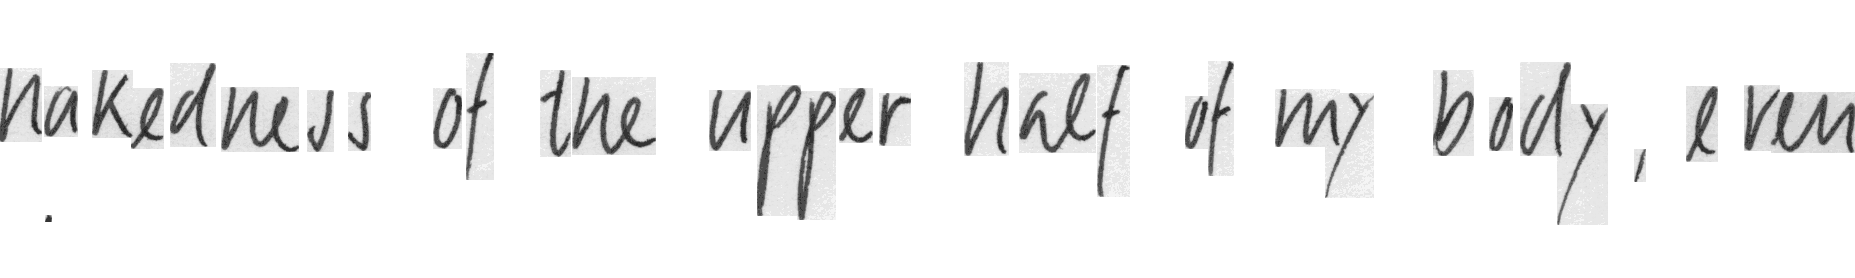 nakedness of the upper half of my body, even
.